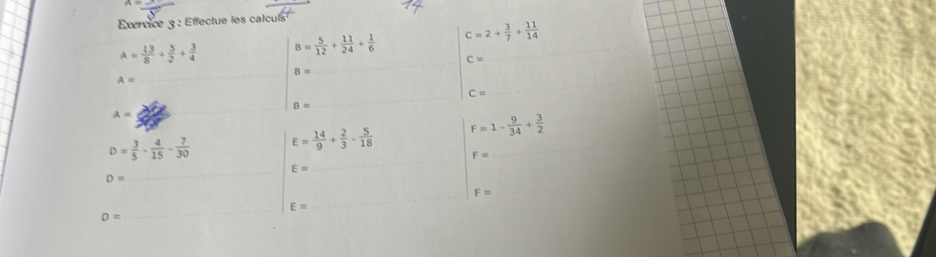 Exercice 3 : Effectue les calculs
A = 13/8 + 5/2 + 3/4
A =
A =
B = 5/12 + 11/24 + 1/6
B =
B =
C = 2 + 3/7 + 11/14
C =
C =
D = 3/5 - 4/15 - 7/30
D =
D =
E = 14/9 + 2/3 - 5/18
E =
E =
F = 1 - 9/34 + 3/2
F =
F =